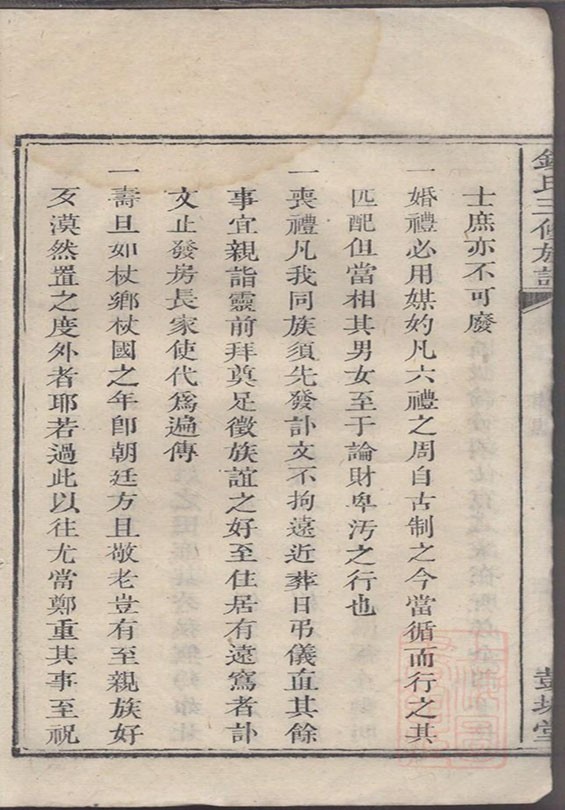 氏三修族譜
士庶亦不可廢
一婚禮必用媒妁凡六禮之周自古制之今當循而行之其
匹配但當相其男女至于論財卑汚之行也
一喪禮凡我同族須先發訃文不拘遠近葬日弔儀直其餘
事宜親詣靈前拜奠足徵族誼之好至住居有遠寫者訃
文止發房長家使代爲遍傳
一壽旦如杖鄉杖國之年卽朝廷方且敬老豈有至親族好
歹漠然置之度外者耶若過此以往尤當鄭重其事至祝
堂